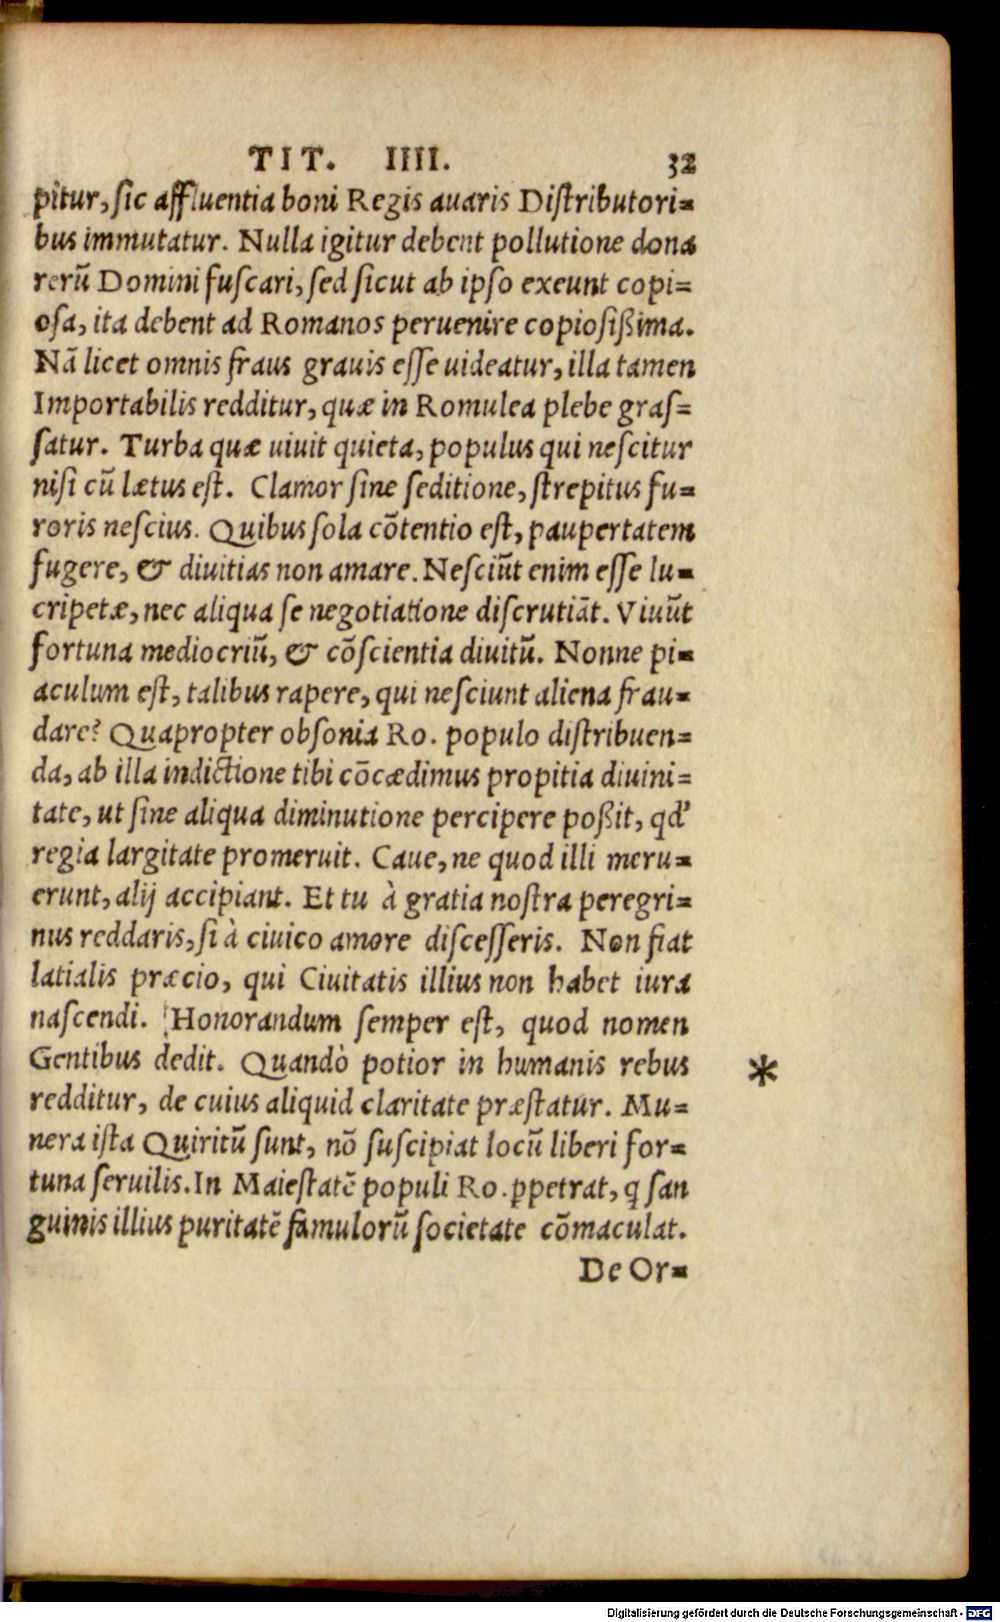 TIT. IIII. 32
pitur, ſic affluentia boni Regis auaris Diſtributori=
bus immutatur. Nulla igitur debent pollutione dona
rerũ Domini fuſcari, ſed ſicut ab ipſo exeunt copi=
oſa, ita debent ad Romanos peruenire copioſißima.
Nã licet omnis fraus grauis eſſe uideatur, illa tamen
Importabilis redditur, quæ in Romulea plebe graſ=
ſatur. Turba quæ uiuit quieta, populus qui neſcitur
niſi cũ lætus eſt. Clamor ſine ſeditione, ſtrepitus fu=
roris neſcius. Quibus ſola cõtentio eſt, paupertatem
fugere, & diuitias non amare. Neſciũt enim eſſe lu=
cripetæ, nec aliqua ſe negotiatione diſcrutiãt. Viuũt
fortuna mediocriũ, & cõſcientia diuitũ. Nonne pi=
aculum eſt, talibus rapere, qui neſciunt aliena frau=
dare? Quapropter obſonia Ro. populo diſtribuen=
da, ab illa indictione tibi cõcædimus propitia diuini=
tate, ut ſine aliqua diminutione percipere poßit, qd'
regia largitate promeruit. Caue, ne quod illi meru=
erunt, alij accipiant. Et tu à gratia noſtra peregri=
nus reddaris, ſi à ciuico amore diſceſſeris. Non fiat
latialis præcio, qui Ciuitatis illius non habet iura
naſcendi. Honorandum ſemper eſt, quod nomen
Gentibus dedit. Quandò potior in humanis rebus *
redditur, de cuius aliquid claritate præſtatur. Mu=
nera iſta Quiritũ ſunt, nõ ſuſcipiat locũ liberi for=
tuna ſeruilis. In Maieſtatẽ populi Ro. ꝑpetrat, q̃ ſan
guinis illius puritatẽ famulorũ ſocietate cõmaculat.
De Or=
Digitalisierung gefördert durch die Deutsche Forschungsgemeinschaft - DFG